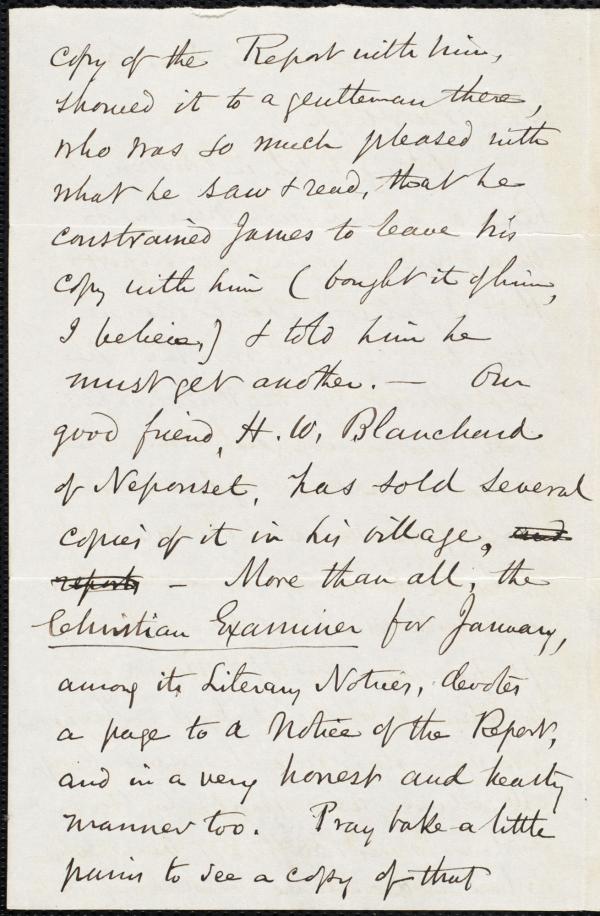 copy of the Report with him,
showed it to a gentleman there,
who was so much pleased with
what he saw & read, that he
constrained James to leave his
copy with him (bought it of him,
I believe,) & told him he
must get another. — Our
good friend, H. W. Blanchard
of Neponset, has sold several
copies of it in his village, and
reports — More than all, the
Christian Examiner for January,
among its Literary Notices, devotes
a page to a Notice of the Report,
and in a very honest and hearty
manner too. Pray take a little
pains to see a copy of that